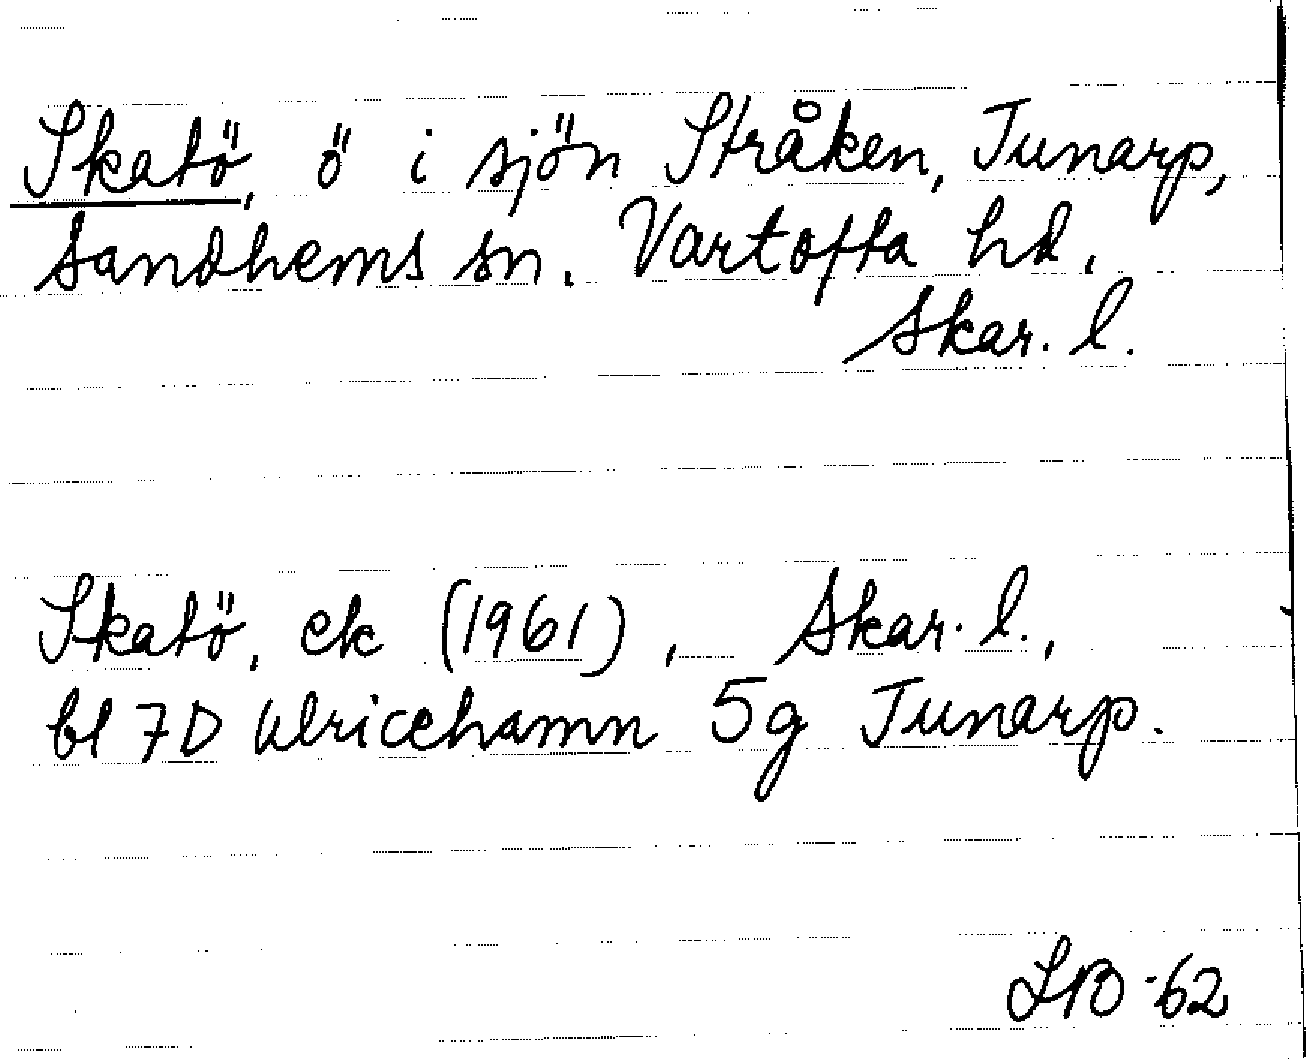 Skatö, ö i sjön Stråken, Tunarp,
Sandhems sn. Vartofta hd.
Skar. l.
Skatö, ek (1961), Skar. l.,
bl 7D Ulricehamn 5g Tunarp.
LBO -62